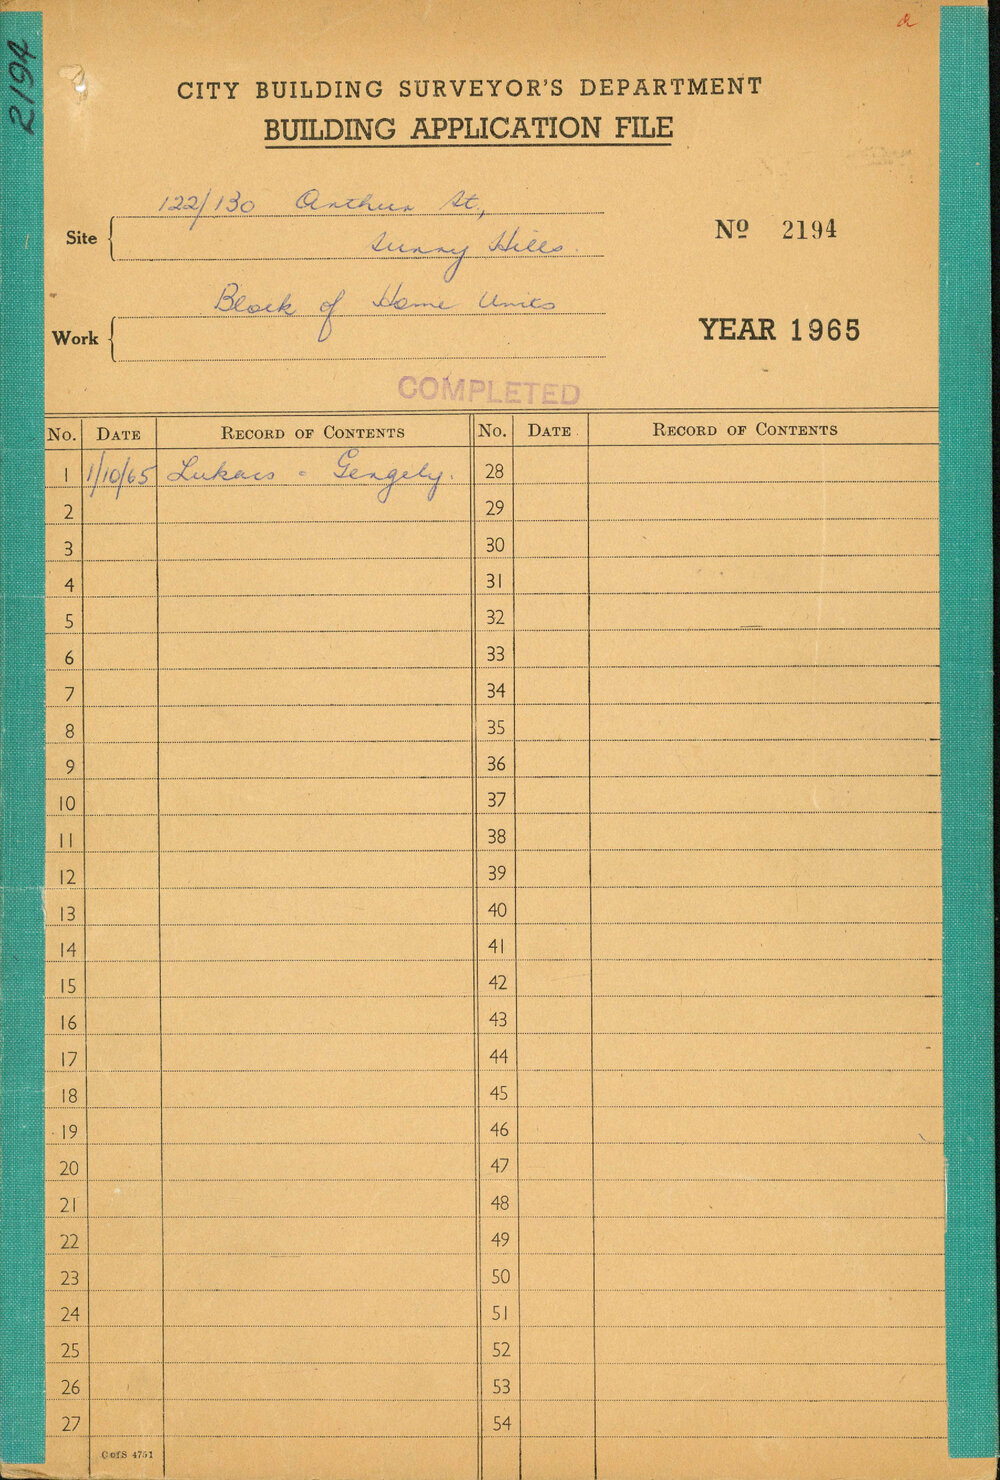 2194
a
CITY BUILDING SURVEYOR'S DEPARTMENT
BUILDING APPLICATION FILE
Site
122/130 Arthur St.,
Surry Hills.
No 2194
Work
Block of Home Units
YEAR 1965
COMPLETED
No. DATE RECORD OF CONTENTS No. DATE RECORD OF CONTENTS
1 1/10/65 Lukacs - Gergely. 28
2 29
3 30
4 31
5 32
6 33
7 34
8 35
9 36
10 37
11 38
12 39
13 40
14 41
15 42
16 43
17 44
18 45
19 46
20 47
21 48
22 49
23 50
24 51
25 52
26 53
27 54
C of S 4751